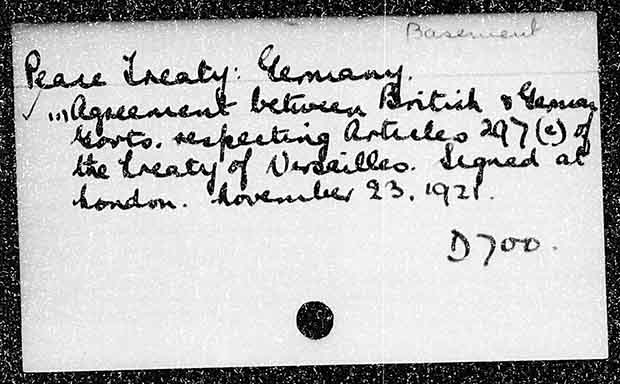 Basement
Peace Treaty: Germany.
✓ ... Agreement between British & German
Govts. respecting Articles 297(e) of
the Treaty of Versailles. Signed at
London. November 23. 1921.
D700.